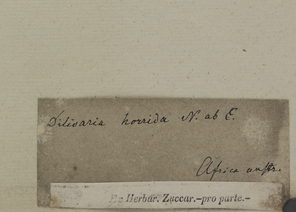 Dilivaria horrida N. ab E.
Africa austr.
Ex Herbar. Zuccar.-pro parte.-